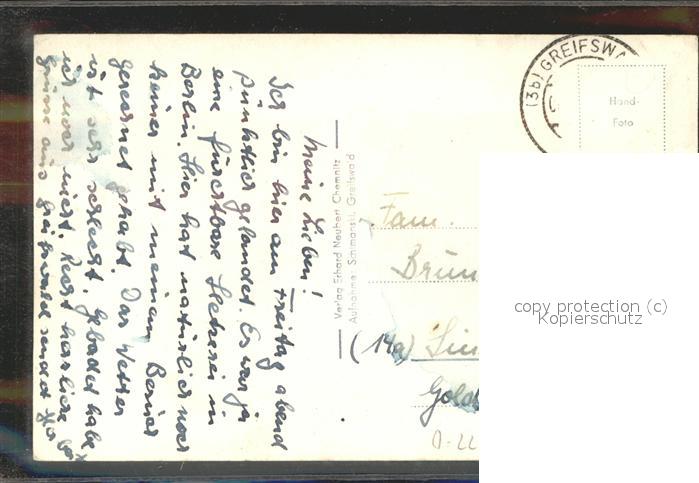 Meine Lieben!
Ich bin hier am Freitag abend
pünktlich gelandet. Es war ja
eine furchtbare Hetzerei in
Berlin. Hier hat natürlich noch
keiner mit meinem Besuch
gerechnet gehabt. Das Wetter
ist sehr schlecht. Gebadet habe
ich noch nicht. Recht herzliche
Grüsse aus Greifswald sendet
Verlag Erhard Neubert Chemnitz
Aufnahme: Simmanski, Greifswald
(3b) GREIFSWA
Hand-
Foto
Fam.
Brün
(14a)
Gold
copy protection (c)
Kopierschutz